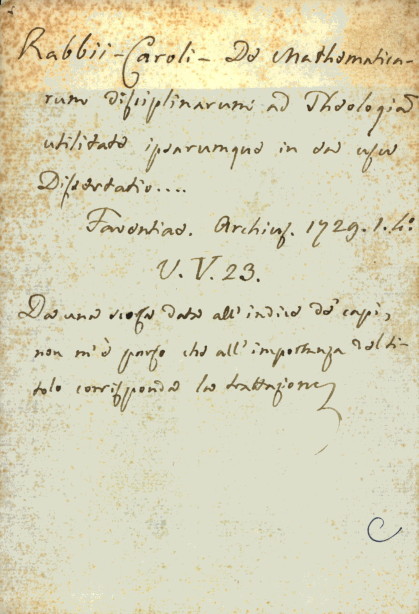 Rabbii - Caroli - De Mathematica-
rum disciplinarum ad Theologiā
utilitate ipsarumque in ea usu
Dissertatio....
Faventiae. Archius. 1729. 1. 4.°
V. V. 23.
Da una scorsa data all' indice de' capi,
non m'è parso che all' importanza del ti-
tolo corrisponda la trattazione
C